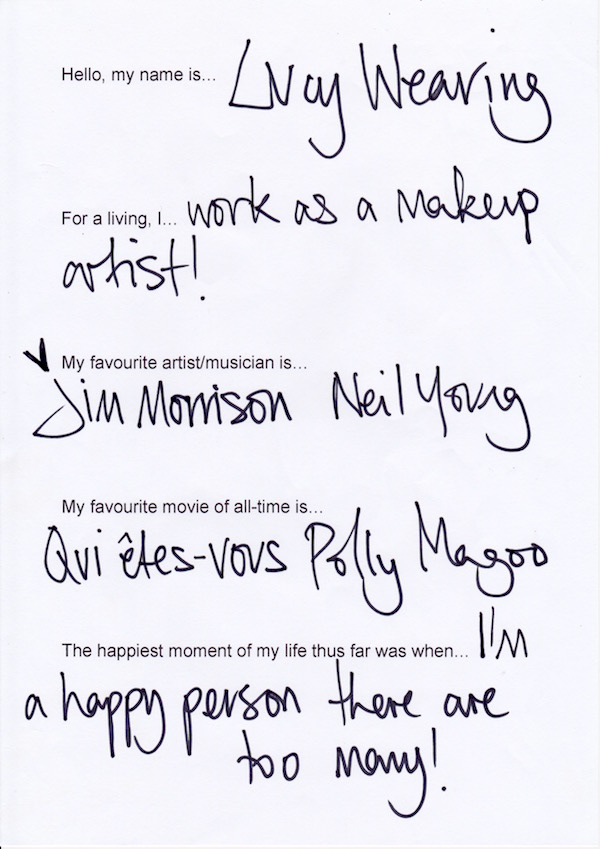 Hello, my name is... Lucy Wearing
For a living, I... work as a makeup
artist!
My favourite artist/musician is...
Jim Morrison Neil Young
My favourite movie of all-time is...
Qui êtes-vous Polly Magoo
The happiest moment of my life thus far was when... I'm
a happy person there are
too many!